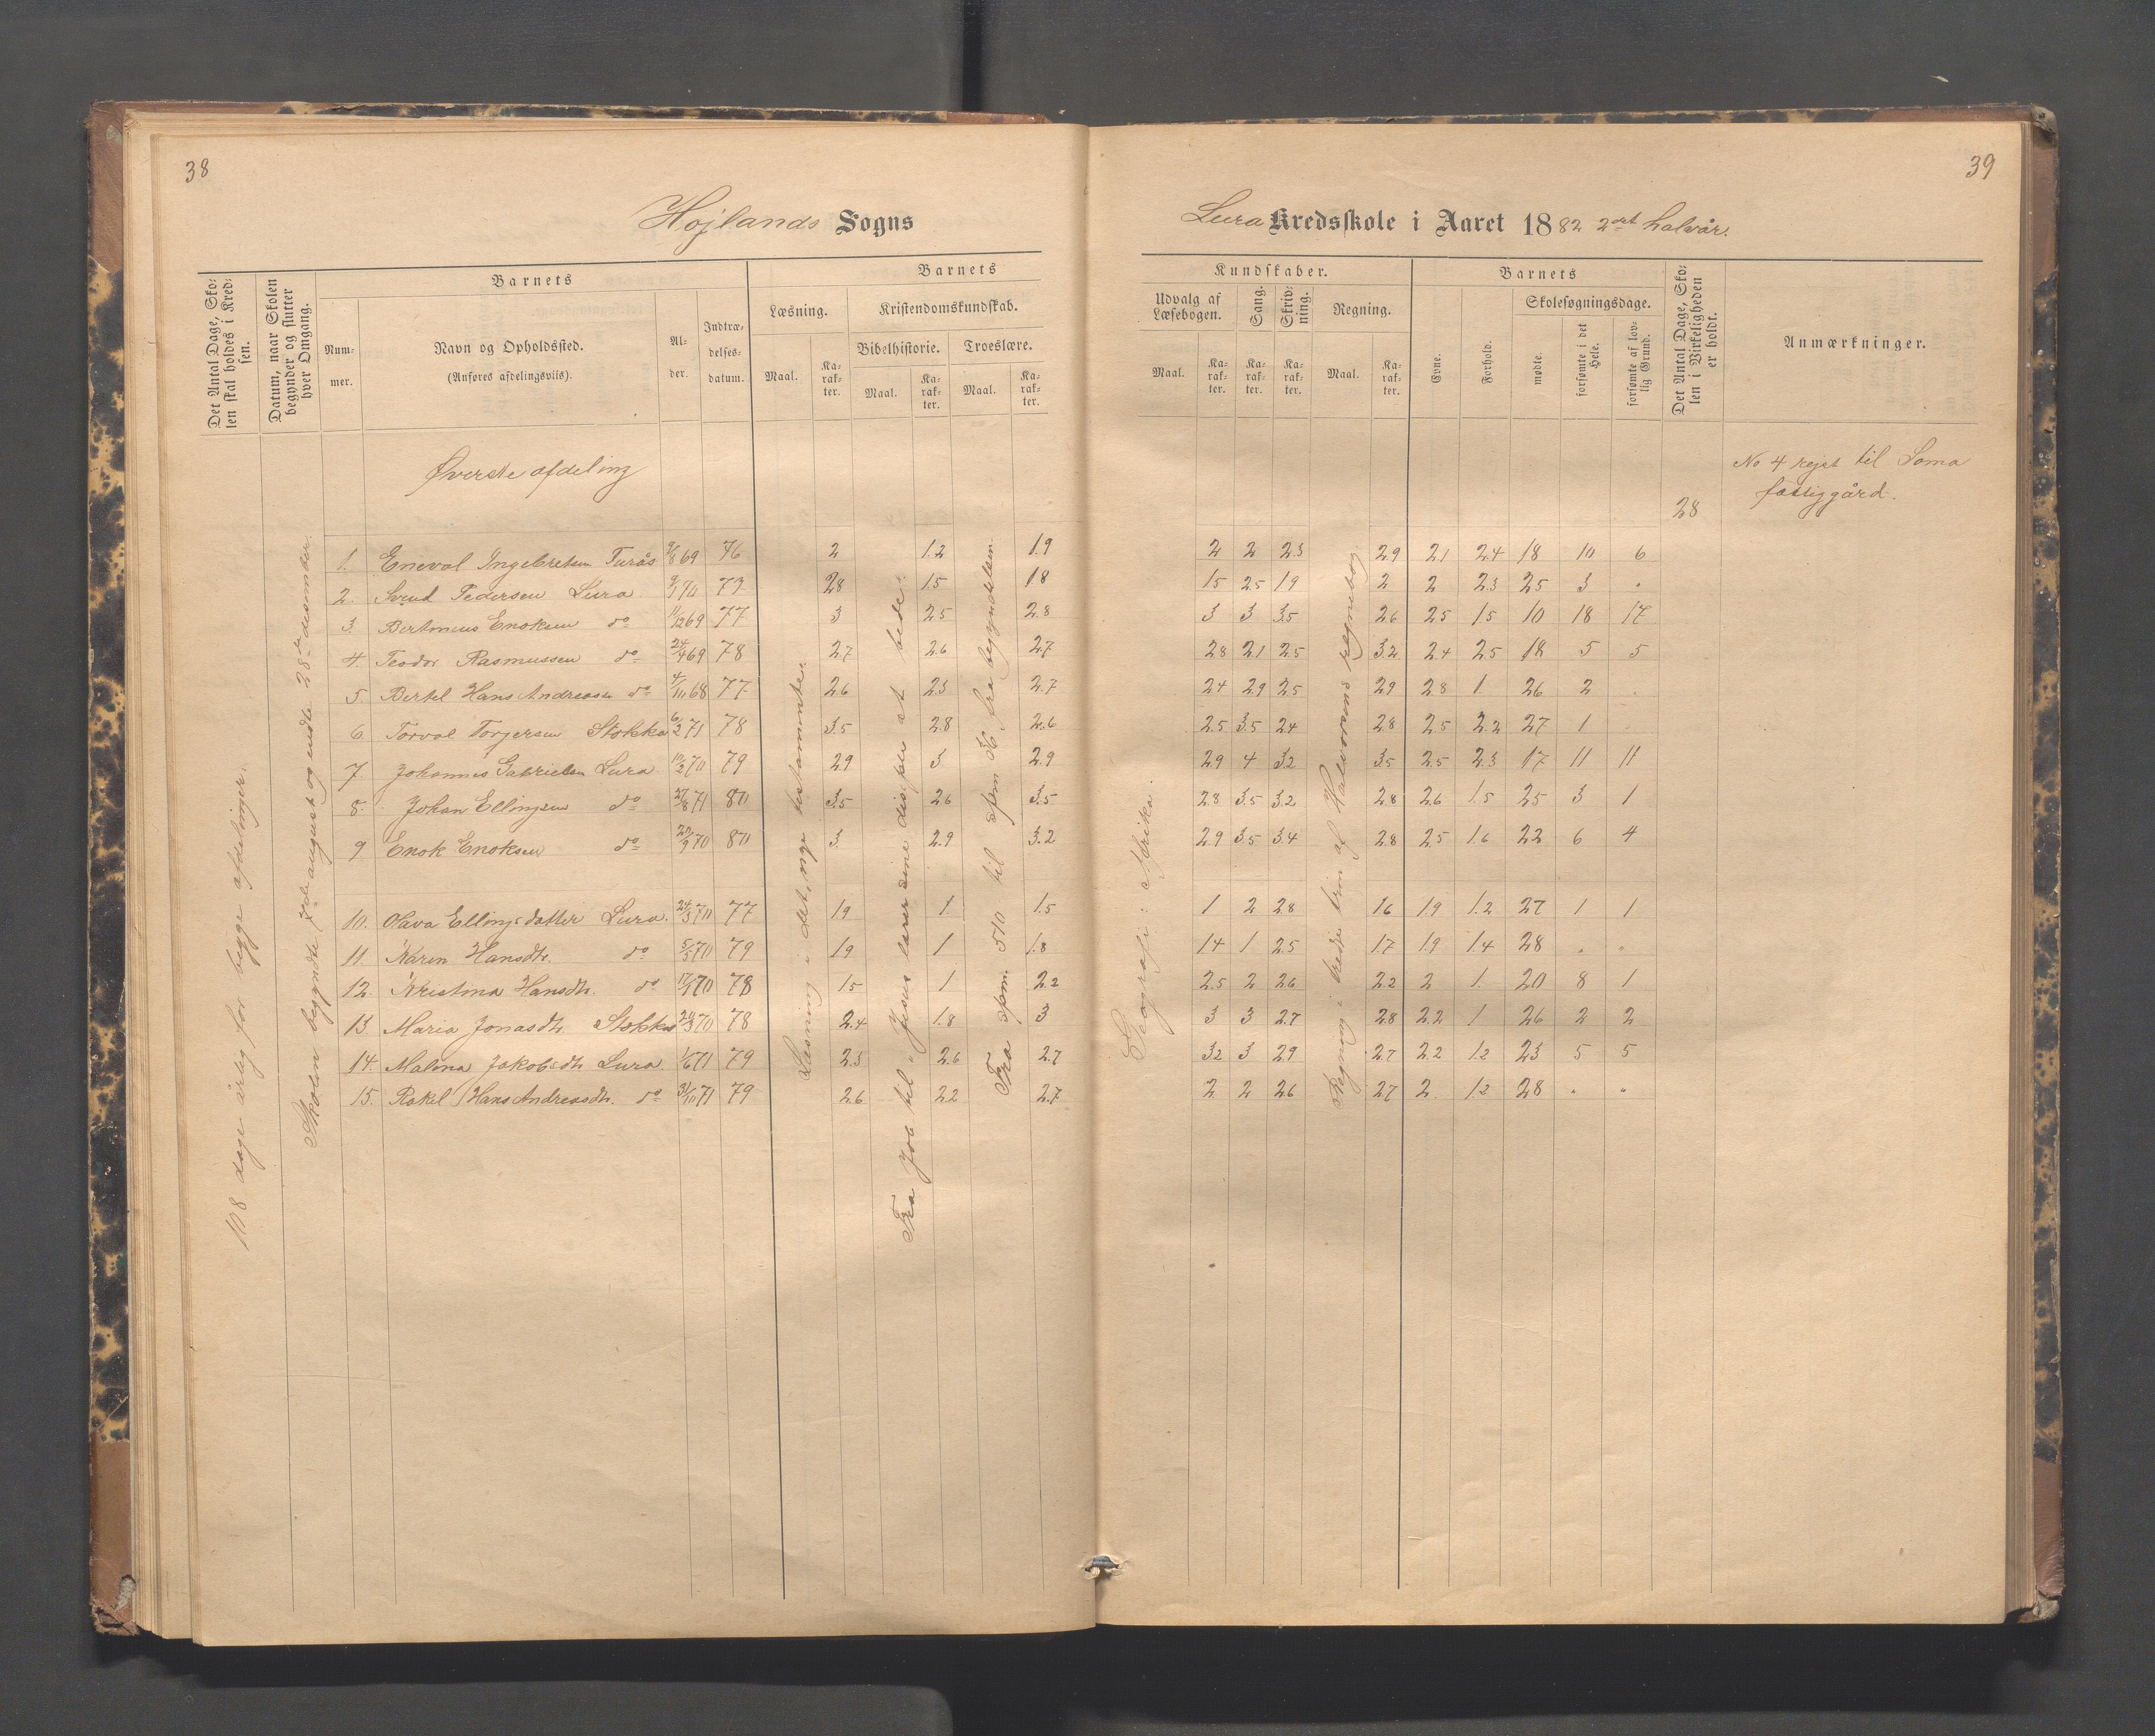 38
Højlands Sogns
Det Antal Dage, Sko-
len skal holdes i Kred-
sen.
Datum, naar Skolen
begynder og slutter
hver Omgang.
Barnets
Num-
mer.
Navn og Opholdssted.
(Anføres afdelingsviis).
Al-
der.
Indtræ-
delses-
datum.
Barnets
Læsning.
Maal.
Ka-
rak-
ter.
Kristendomskundskab.
Bibelhistorie.
Maal.
Ka-
rak-
ter.
Troeslære.
Maal.
Ka-
rak-
ter.
108 dage årlig for begge afdelinger.
Skolen begyndte 7de august og endte 28de desember.
Øverste afdeling
1. Eneval Ingebretsen 69 76 2 1.2 1.9
2. Svend Pedersen Lura 70 77 28 1.5 1.8
3. Enoksen do 11/12 69 77 3 2.5 2.8
4. Teodor Rasmussen do 24/4 69 78 2.7 2.6 2.7
5. Bertel Hans Andreasen do 4/10 68 77 2.6 2.3 2.7
6. Torval Torgersen Stokka 6/2 71 78 3.5 2.8 2.6
7. Johannes Gabrielsen Lura 70 79 2.9 3 2.9
8. Johan Ellingsen do 27/8 71 80 3.5 2.6 3.5
9 Enok Enoksen do 70 80 3. 2.9 3.2
10. Olava Ellingsdatter Lura. 24/3 70 77 1.9 1. 1.5
11. Karen Hansdtr. do 5/5 70 79 1.9 1 1.8
12. Kristina Hansdtr. do 70 78 1.5 1 2.2
13. Maria Jonasdtr. Stokka 70 78 2.4 1.8 3
14. Malena Jakobsdtr. Lura. 1/6 71 79 2.3 2.6 2.7
15. Rakel Hans Andreasdtr. do 31/10 71 79 2.6 2.2 2.7
Læsning i det nye testamente.
Fra Job til "Jesus lærer sine disiple at bede".
Fra spm. 510 til spm 36 fra begyndelsen.
39
Lura Kredsskole i Aaret 1882 2det halvår.
Kundskaber.
Udvalg af
Læsebogen.
Maal.
Ka-
rak-
ter.
Sang.
Ka-
rak-
ter.
Skriv-
ning.
Ka-
rak-
ter.
Regning.
Maal.
Ka-
rak-
ter.
Barnets
Evne.
Forhold.
Skolesøgningsdage.
mødte.
forsømte i det
Hele.
forsømte af lov-
lig Grund.
Det Antal Dage, Sko-
len i Virkeligheden
er holdt.
Anmærkninger.
No 4 rejst til Soma
fattiggård.
28
2 2 2.3 2.9 2.1 2.4 18 10 6
1.5 2.5 1.9 2 2 2.3 25 3 "
3 3 3.5 2.6 2.5 1.5 10 18 17
2.8 2.1 2.5 3.2 2.4 2.5 18 5 5
2.4 2.9 2.5 2.9 2.8 1. 26 2 "
2.5 3.5 2.4 2.8 2.5 2.2 27 1 "
2.9 4 3.2 3.5 2.5 2.3 17 11 11
2.8 3.5 3.2 2.8 2.6 1.5 25 3 1
2.9 3.5 3.4 2.8 2.5 1.6 22 6 4
1 2 2.8 1.6 1.9 1.2 27 1 1
1.4 1 2.5 1.7 1.9 1.4 28 " "
2.5 2 2.6 2.2 2 1. 20 8 1
3 3 2.7 2.8 2.2 1 26 2 2
3.2 3 2.9 2.7 2.2 1.2 23 5 5
2 2 2.6 2.7 2. 1.2 28 " "
Geografi: Afrika.
Regning i tredje trin af Halvorsens regnebog.